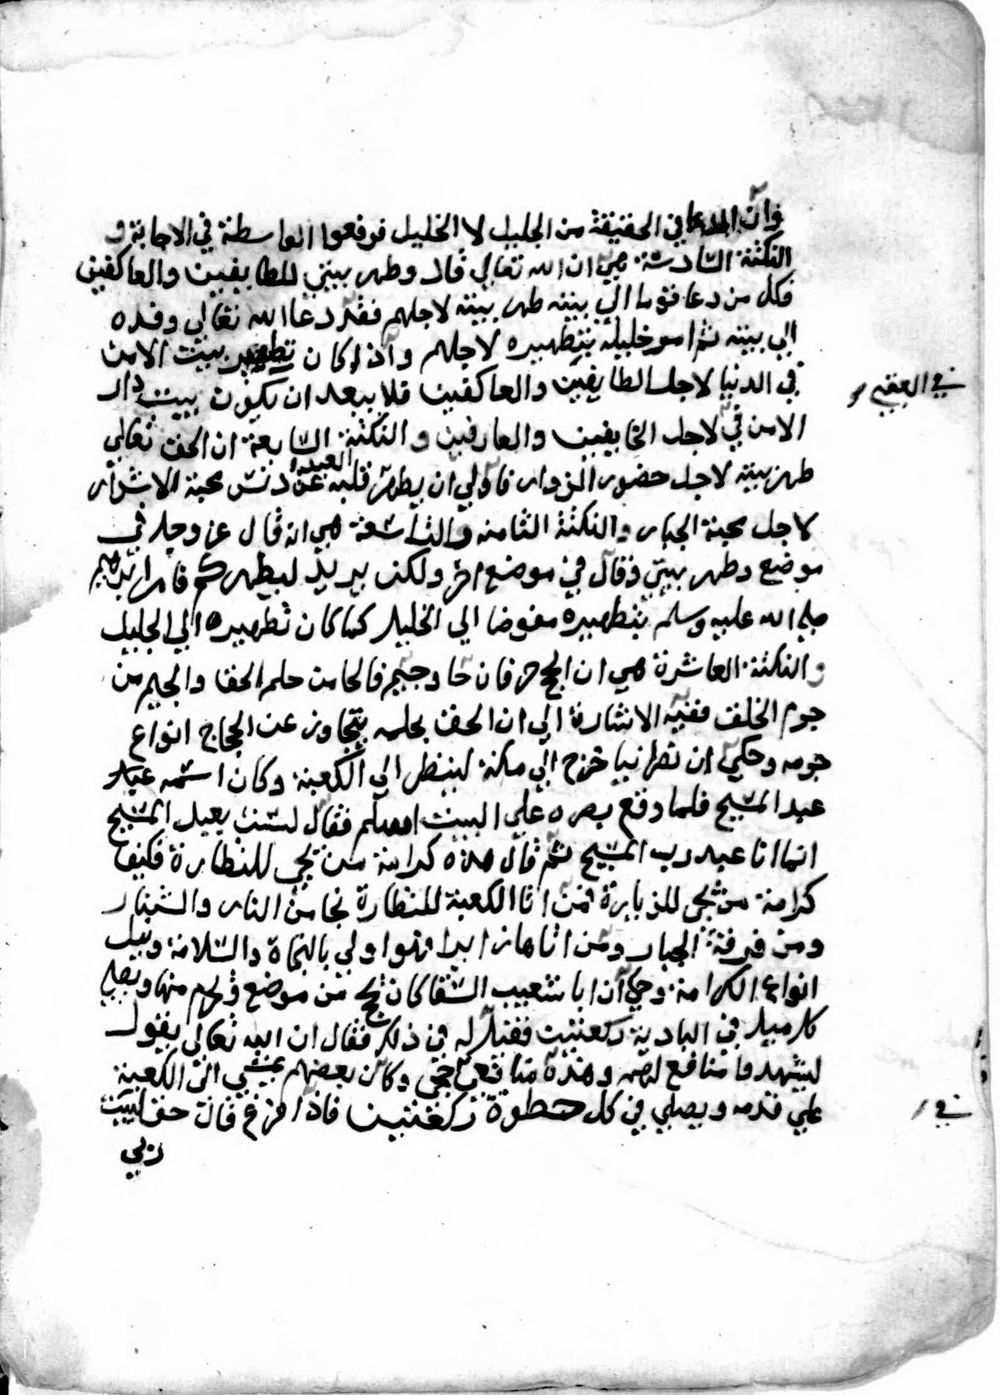 وان الدعا في الحقيقة من الجليل لا الخليل فرفعوا الواسطة في الاجابة و
النكتة السادسة هي ان الله تعالي قال وطهر بيتي للطايفين والعاكفين
فكل من دعا قوما الي بيته طهر بيته لاجلهم فقد دعا الله تعالي وفده
الي بيته ثم امر خليله بتطهيره لاجلهم واذا كان تطهير بيت الامن
في الدنيا لاجل الطايفين والعاكفين فلا يبعد ان يكون بيت دار
في العقبي
الامن في لاجل الخايفين والعارفين والنكتة السابعة ان الحق تعالي
طهر بيته لاجل حضور الزوار فاولي ان يطهر قلبه العبد عن دنس محبة الاشرار
لاجل محبة الجبار والنكتة الثامنه والتاسعة هي انه قال عز وجل في
موضع وطهر بيتي وقال في موضع اخر ولكن يريد ليطهركم فامر ابرهيم
صلي الله عليه وسلم بتطهيره مفوضا الي الخليل كما كان تطهيره الي الجليل
والنكتة العاشرة هي ان الحج حرفان حا وجيم فالحا من حلم الحق والجيم من
جرم الخلق ففيه الاشارة الي ان الحق بحلمه يتجاوز عن الحجاج انواع
جرمه وحكي ان نصرانيا خرج الي مكة لينظر الي الكعبة وكان اسمه عبد
عبد المسيح فلما وقع بصره علي البيت اسلم فقال لست بعبد المسيح
انما انا عبد رب المسيح ثم قال هذه كرامة من يجي للنظارة فكيف
كرامة من يجي للزيارة فمن اتا الكعبة للنظارة نجا من النار والشنار
ومن فرقة الجبار ومن اتاها زايرا فهو اولي بالنجاة والسلامة ونيل
انواع الكرامة وحكي ان ابا شعيب السقا كان يحج من موضع ويحرم منها ويصلي
كل ميل في البادية ركعتين فقيل له في ذلك فقال ان الله تعالي يقول
ليشهدوا منافع لهم وهذه منافعي في حجي وكان بعضهم يمشي الي الكعبة
علي قدمه ويصلي في كل خطوة ركعتين فاذا فرغ قال حق لبيت
في
ربي